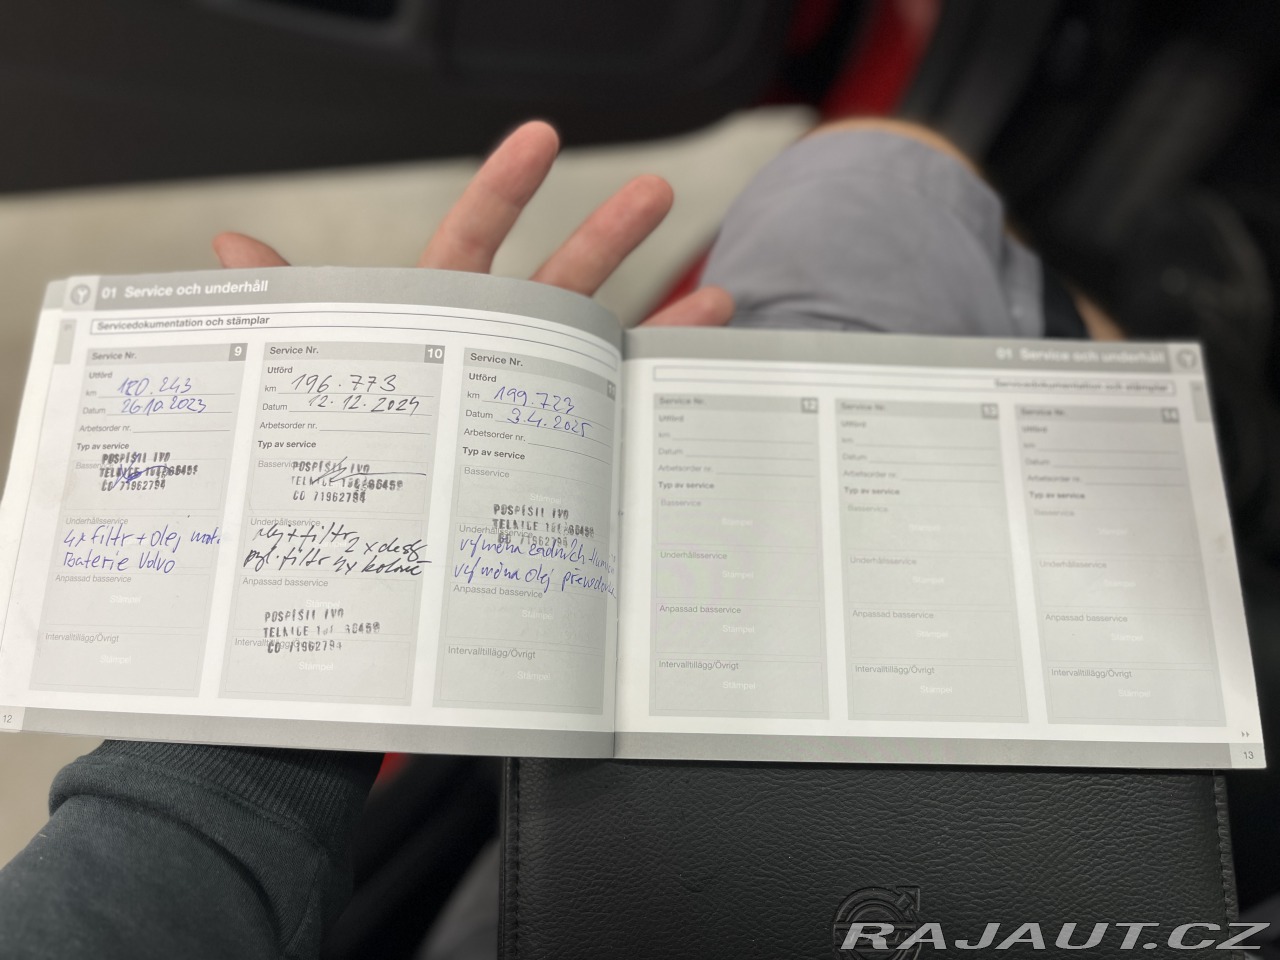 01 Service och underhåll
Servicedokumentation och stämplar
Service Nr. 9
Utförd
km 180.243
Datum 26.10.2023
Arbetsorder nr.
Typ av service
Basservice
POSPÍŠIL IVO
TELNICE
CO 71962794
Underhållsservice
4x filtr + olej mot.
Baterie Volvo
Anpassad basservice
Stämpel
Intervalltillägg/Övrigt
Stämpel
12
Service Nr. 10
Utförd
km 196.773
Datum 12.12.2024
Arbetsorder nr.
Typ av service
Basservice
POSPÍŠIL IVO
TELNICE
CO 71962794
Underhållsservice
olej + filtr 2x desky
pyl. filtr
Anpassad basservice
POSPÍŠIL IVO
TELNICE
CO 71962794
Intervalltillägg/Övrigt
Stämpel
Service Nr. 11
Utförd
km 199.723
Datum 3.4.2025
Arbetsorder nr.
Typ av service
Basservice
Stämpel
POSPÍŠIL IVO
TELNICE
CO 71962794
Underhållsservice
výměna zadních
výměna olej
Anpassad basservice
Stämpel
Intervalltillägg/Övrigt
Stämpel
01 Service och underhåll
Servicedokumentation och stämplar
Service Nr. 12
Utförd
km
Datum
Arbetsorder nr.
Typ av service
Basservice
Stämpel
Underhållsservice
Stämpel
Anpassad basservice
Stämpel
Intervalltillägg/Övrigt
Stämpel
Service Nr. 13
Utförd
km
Datum
Arbetsorder nr.
Typ av service
Basservice
Stämpel
Underhållsservice
Stämpel
Anpassad basservice
Stämpel
Intervalltillägg/Övrigt
Stämpel
Service Nr. 14
Utförd
km
Datum
Arbetsorder nr.
Typ av service
Basservice
Stämpel
Underhållsservice
Stämpel
Anpassad basservice
Stämpel
Intervalltillägg/Övrigt
Stämpel
13
RAJAUT.CZ